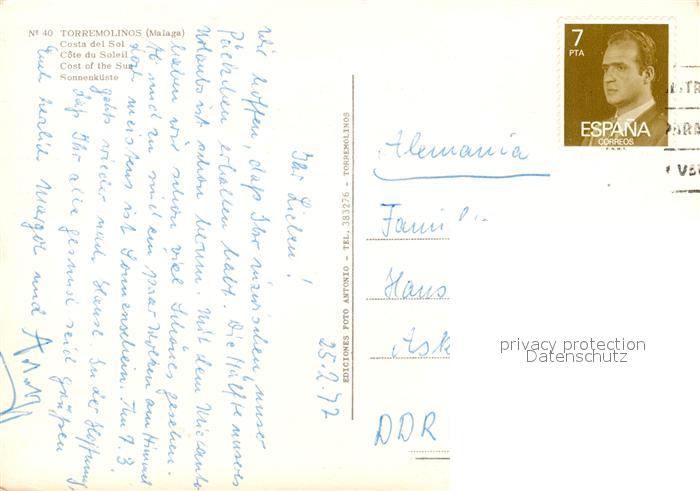 Nº 40 TORREMOLINOS (Malaga)
Costa del Sol
Côte du Soleil
Cost of the Sun
Sonnenküste
25.2.77
Ihr Lieben!
Wir hoffen, daß Ihr inzwischen unser
Päckchen erhalten habt. Die Hälfte unseres
Urlaubs ist schon herum. Mit dem Mietauto
haben wir schon viel Schönes gesehen.
Ab und zu sind ein paar Wolken am Himmel
doch meistens ist Sonnenschein. Am 9.3.
geht's wieder nach Hause. In der Hoffnung,
daß Ihr alle gesund seid grüßen
Euch herzlich Margot und
EDICIONES FOTO ANTONIO - TEL. 383276 - TORREMOLINOS
7
PTA
ESPAÑA
CORREOS
F.N.M.T.
PARA
Alemania
Famili
Hans
Ask
DDR
privacy protection
Datenschutz